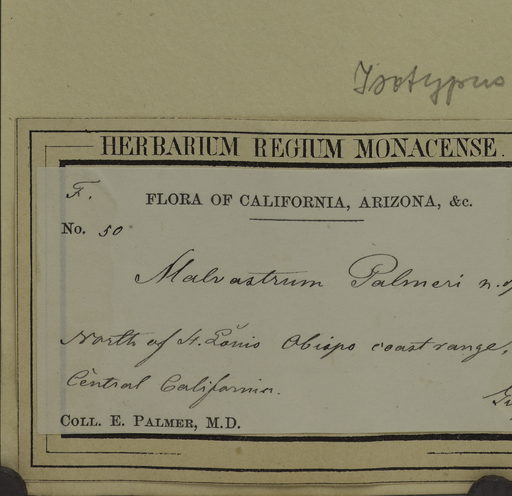 Isotypus
HERBARIUM REGIUM MONACENSE.
F.
FLORA OF CALIFORNIA, ARIZONA, &c.
No. 50
Malvastrum Palmeri n.
North of St. Louis Obispo coast range,
Central California.
COLL. E. PALMER, M.D.